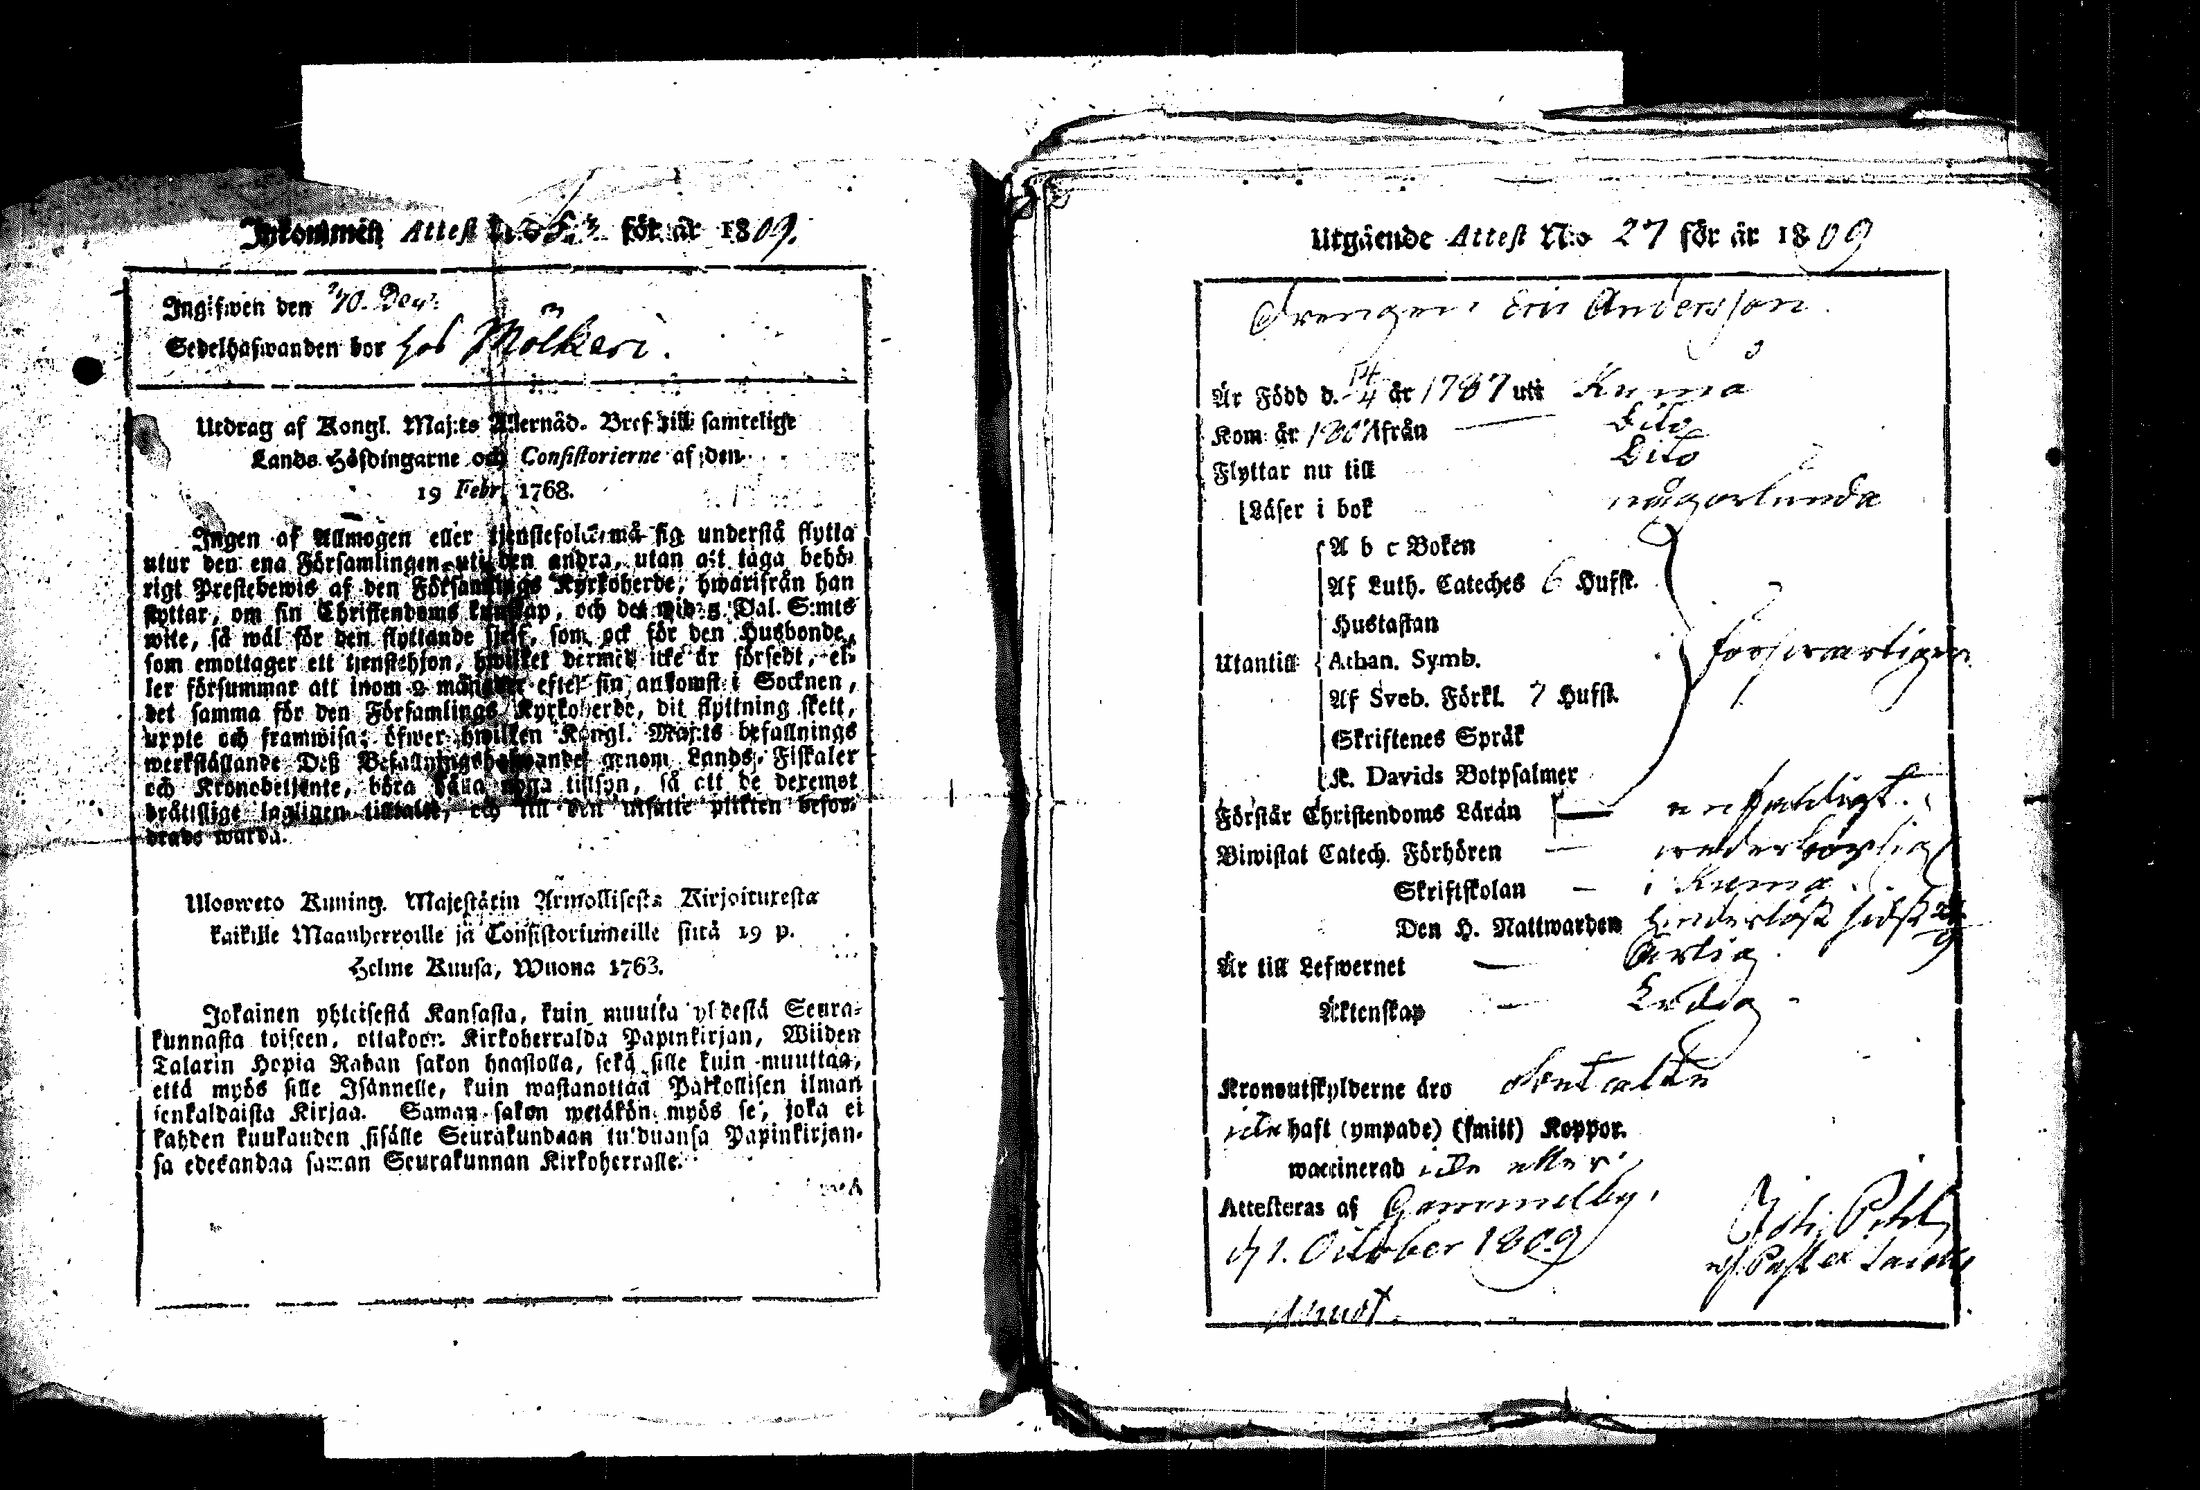 Inkommen Attest N:o 53 för år 1809.
Ingifwen den 20. Dec:
Sedelhafwanden bor hos Mölkäri.
Utdrag af Kongl. Maj:ts Allernåd. Bref till samtelige
Lands Höfdingarne och Consistorierne af den
19 Febr. 1768.
Ingen af Allmogen eller tjenstefolk må sig understå flytta
utur den ena Församlingen uti den andra, utan att taga behö-
rigt Prestebewis af den Församlings Kyrkoherde, hwarifrån han
flyttar, om sin Christendoms kunskap, och det wid 5 Dal. S:mts
wite, så wäl för den flyttande sjelf, som ock för den Husbonde,
som emottager ett tjenstehjon, hwilket dermed icke är försedt, el-
ler försummar att inom 2 månader efter sin ankomst i Socknen,
det samma för den Församlings Kyrkoherde, dit flyttning skett,
uppte och framwisa; öfwer hwilken Kongl. Maj:ts befallnings
werkställande Deß Befallningshafwande genom Lands-Fiskaler
och Kronobetjente, böra hålla noga tillsyn, så att de deremot
brätslige lagligen tilltalte, och till den utsatte plikten befor-
drade warda.
Ulosweto Kuning. Majestätin Armollisesta Kirjoituxesta
kaikille Maanherroille ja Consistoriumeille siitä 19 p.
Helme Kuusa, Wuona 1763.
Jokainen yhteisestä Kansasta, kuin muutta yhdestä Seura-
kunnasta toiseen, ottakoon Kirkoherralda Papinkirjan, Wiiden
Talarin Hopia Rahan sakon haastolla, sekä sille kuin muuttaa,
että myös sille Isännelle, kuin wastanottaa Palkollisen ilman
senkaldaista Kirjaa. Saman sakon wetäkön myös se, joka ei
kahden kuukauden sisälle Seurakundaan tulduansa Papinkirjan-
sa edesandaa saman Seurakunnan Kirkoherralle.
Utgående Attest N:o 27 för år 1809
Drengen Eric Andersson.
Är Född d. 14/4 år 1787 uti Kumå
Kom år 1807 ifrån Dito
Flyttar nu till Dito
Läser i bok någorlunda
A b c Boken
Af Luth. Cateches 6 Hufst.
Hustaflan
Utantill Athan. Symb. försvarligen
Af Sveb. Förkl. 7 Hufst.
Skriftenes Språk
K. Davids Botpsalmer
Förstår Christendoms Läran enfaldigt.
Biwistat Catech. Förhören wederbörlig
Skriftskolan i Kumo
Den H. Nattwarden hinderlöst sidst
Är till Lefwernet Ärlig.
Äktenskap Ledig
Kronoutskylderne äro obetalte
icke haft (ympade) (smitt) Koppor.
waccinerad icke eller.
Attesteras af Gammelby,
d. 1. October 1809